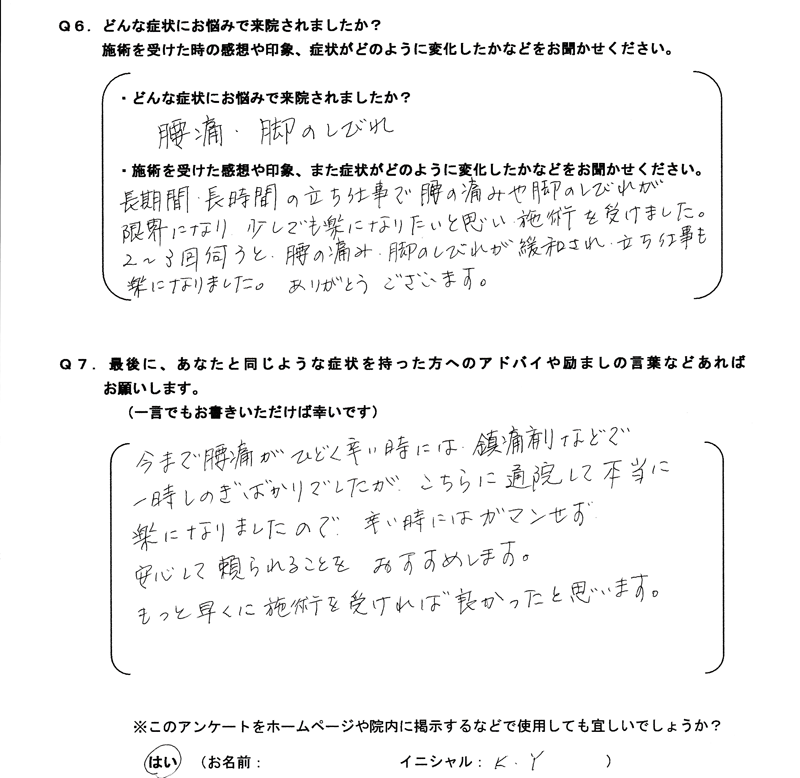 Ｑ６．どんな症状にお悩みで来院されましたか？
施術を受けた時の感想や印象、症状がどのように変化したかなどをお聞かせください。
・どんな症状にお悩みで来院されましたか？
腰痛・脚のしびれ
・施術を受けた感想や印象、また症状がどのように変化したかなどをお聞かせください。
長期間・長時間の立ち仕事で腰の痛みや脚のしびれが
限界になり 少しでも楽になりたいと思い、施術を受けました。
2～3回伺うと、腰の痛み・脚のしびれが緩和され、立ち仕事も
楽になりました。 ありがとうございます。
Ｑ７．最後に、あなたと同じような症状を持った方へのアドバイや励ましの言葉などあれば
お願いします。
（一言でもお書きいただけば幸いです）
今まで腰痛がひどく辛い時には、鎮痛剤などで
一時しのぎばかりでしたが、こちらに通院して本当に
楽になりましたので、辛い時にはガマンせず
安心して頼られることを おすすめします。
もっと早くに施術を受ければ良かったと思います。
※このアンケートをホームページや院内に掲示するなどで使用しても宜しいでしょうか？
はい （お名前： イニシャル：K.Y ）